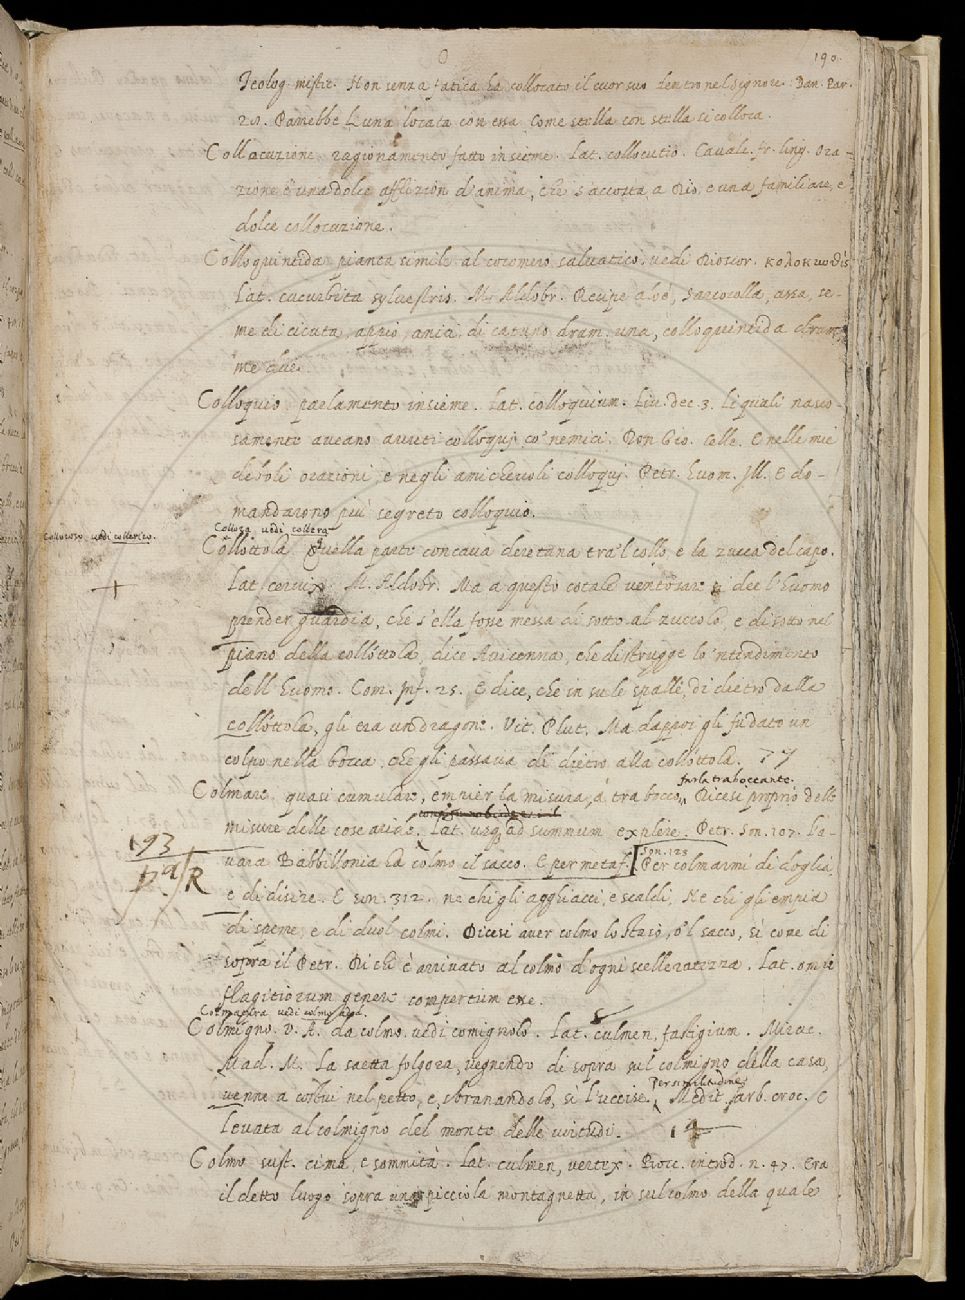 190.
Teolog. mistic. Non senza fatica ha collocato il cuor suo dentro nel Signore. Dan. Par.
28. Parrebbe Luna locata con essa Come stella con stella si colloca.
Collocuzione, ragionamento fatto insieme. Lat. collocutio. Cavalc. fr. ling. Ora-
zione è una dolce afflizion d'anima, che s'accosta a Dio, e una familiare, e
dolce collocuzione.
Colloquintida pianta simile al cocomero salvatico. vedi Dioscor. κολοκυνθίς
Lat. cucurbita sylvestris. M. Aldobr. Recipe aloè, sarcocolla, assa, se-
me di cicuta, appio, anici di catuno dram. una, colloquintida dram-
me due.
Colloquio parlamento insieme. Lat. colloquium. Liv. Dec. 3. Li quali nasco-
samente aveano avuti colloquj co' nemici. Don Gio. Celle. E nelle mie
deboli orazioni, e negli amichevoli colloquj. Petr. Huom. Ill. E do-
mandarono più segreto colloquio.
Collora vedi collera
Colloroso vedi collerico.
Collottola Quella parte concava deretana tra'l collo, e la zucca del capo.
Lat. cervix M. Aldobr. Ma a questo cotale ventosare si dee l'huomo
prender guardia, che s'ella fosse messa al sotto al zuccolo, e di sotto nel
piano della collottola, dice Avicenna, che distrugge lo 'ntendimento
dell'huomo. Com. Inf. 25. E dice, che in su le spalle, di dietro dalla
collottola, gli era un dragone. Vit. Plut. Ma dappoi gli fu dato un
colpo nella bocca, che gli passava di dietro alla collottola. 77
farla traboccante.
Colmare, quasi cumulare, empier la misura, a trabocco, Dicesi proprio delle
misure delle cose aride. Lat. usq. ad summum explere. Petr. Son. 107. L'a-
193
Son. 123
vara Babbillonia ha colmo il sacco. E per metaf. Per colmarmi di doglia,
e di disire. E son. 312. ne chi gli agghiacci, e scaldi, Ne chi gli empia
di speme, e di duol colmi. Dicesi aver colmo lo staio, o'l sacco, sì come di
sopra il Petr. Di chi è arrivato al colmo d'ogni scelleratezza. Lat. omne
flagitiorum genere compertum esse.
Colmigno. v. A. da colmo. vedi comignolo. Lat. culmen, fastigium. Mirac.
Mad. M. La saetta folgora, vegnendo di sopra sul colmigno della casa,
Per similitudine
venne a costui nel petto, e, sbranandolo, si l'uccise. Medit. arb. croc. E
levata al colmigno del monte delle virtudi. 14
Colmo sust. cima, e sommità. Lat. culmen, vertex. Bocc. introd. n. 47. Era
il detto luogo sopra una picciola montagnetta, in sul colmo della quale